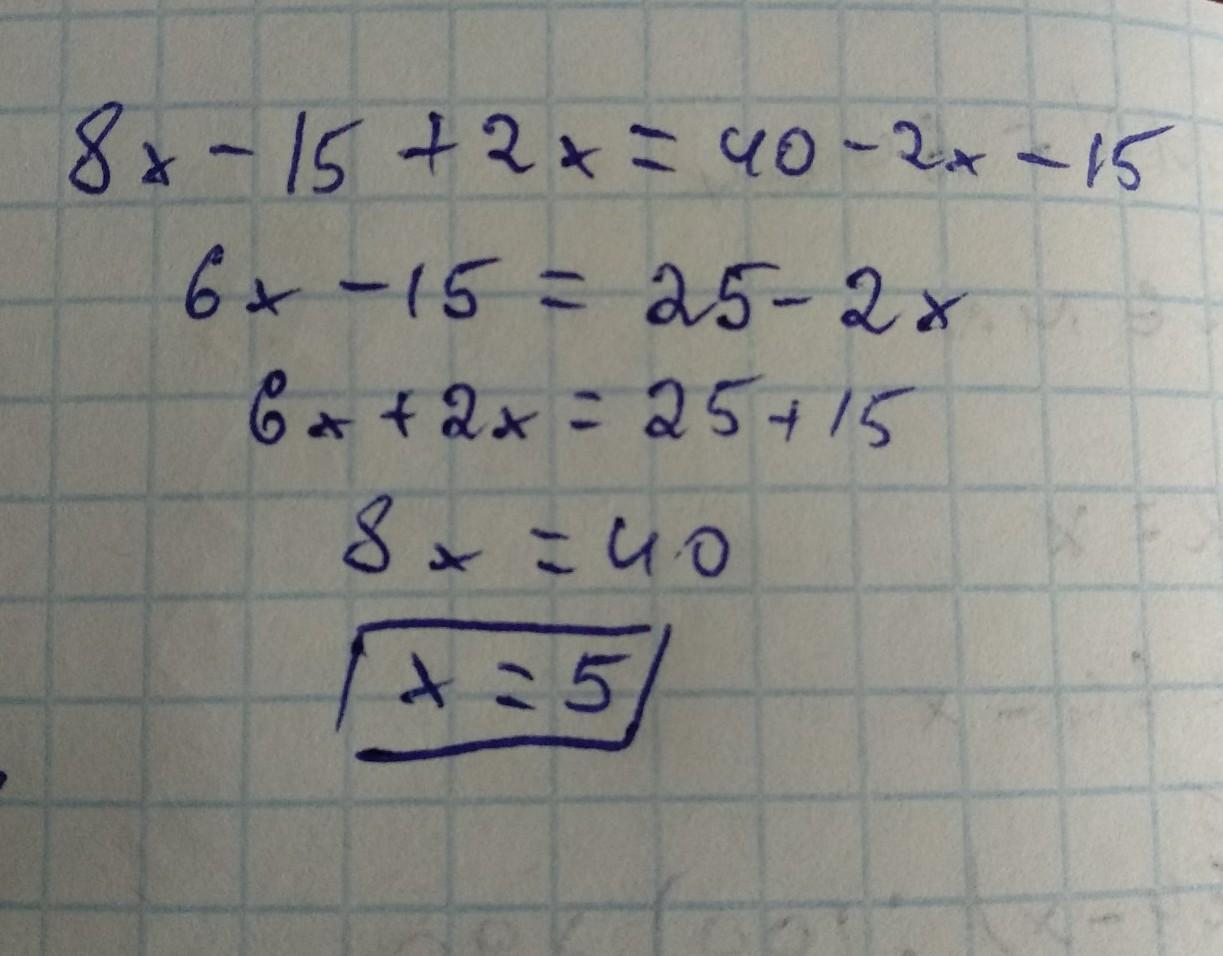 8x - 15 + 2x = 40 - 2x - 15
6x - 15 = 25 - 2x
6x + 2x = 25 + 15
8x = 40
x = 5